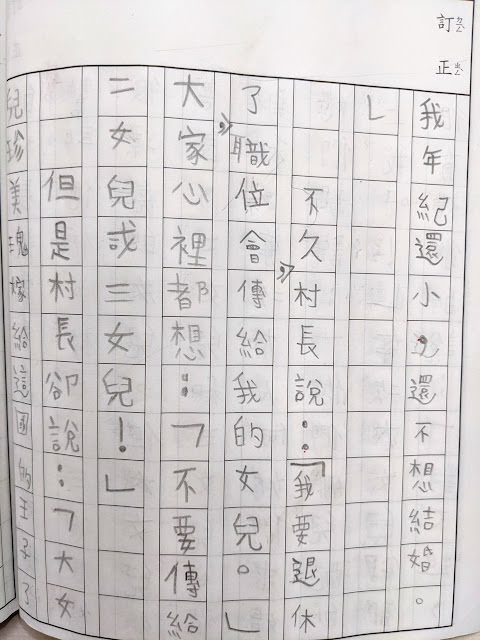 訂正
我年紀還小,還不想結婚。
」
不久,村長說:「我要退休
了,職位會傳給我的女兒。」
大家心裡都想:「不要傳給
二女兒或三女兒!」
但是村長卻說:「大女
兒珍美瑰嫁給這國的王子了